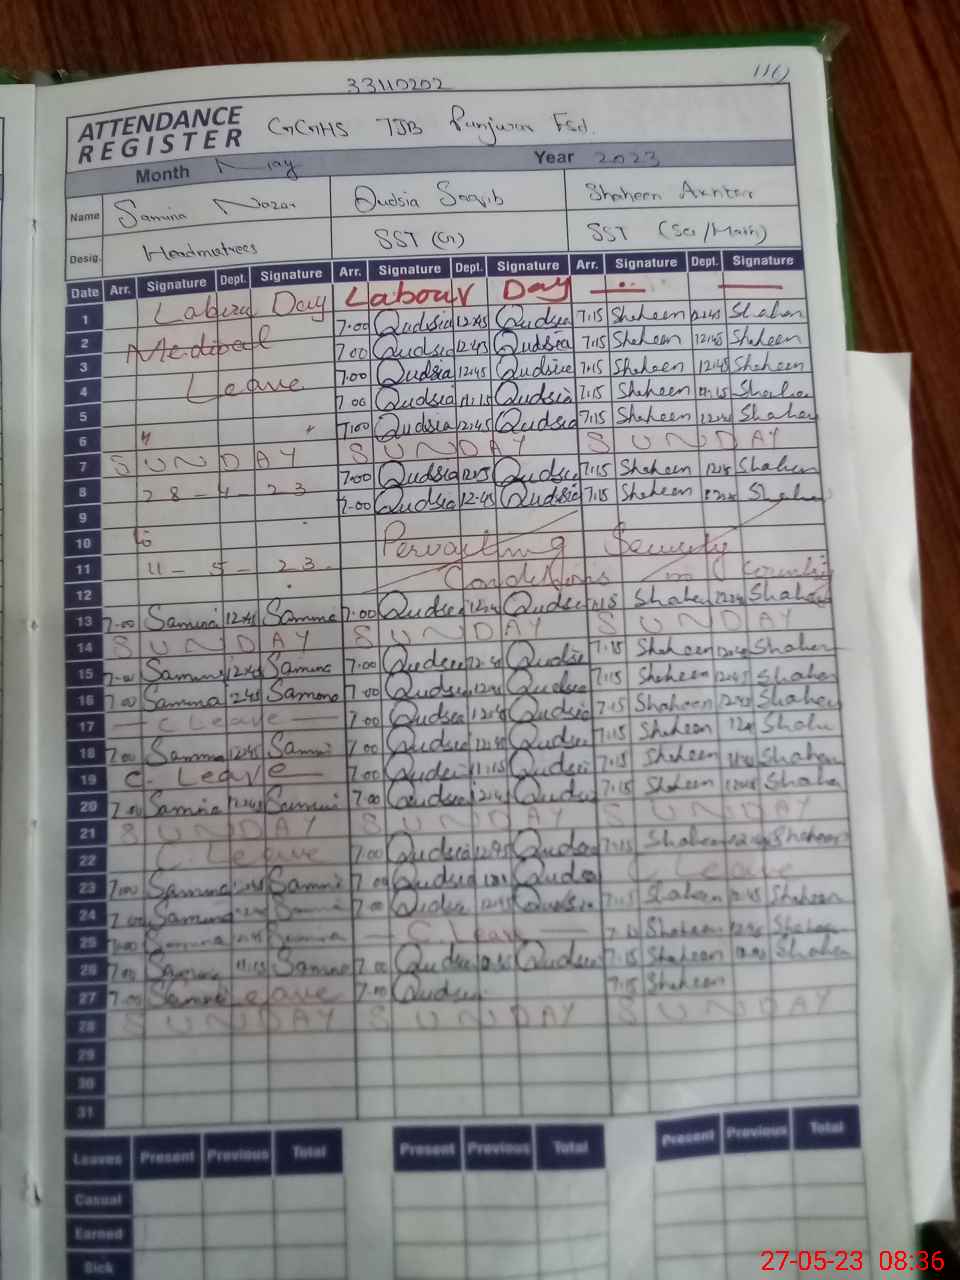 33110202
116
ATTENDANCE REGISTER GGHS 7JB Punjwar Fsd.
Month May Year 2023
Name Samina Nazar Qudsia Saqib Shaheen Akhter
Desig. Headmistress SST (G) SST (Sci/Math)
Date Arr. Signature Dept. Signature Arr. Signature Dept. Signature Arr. Signature Dept. Signature
1 Labour Day Labour Day
2 Medical 7.00 Qudsia 12:45 Qudsia 7:15 Shaheen 12:45 Shaheen
3 7.00 Qudsia 12:45 Qudsia 7:15 Shaheen 12:45 Shaheen
4 Leave 7.00 Qudsia 12:45 Qudsia 7:15 Shaheen 12:45 Shaheen
5 7.00 Qudsia 11:15 Qudsia 7:15 Shaheen 11:15 Shaheen
6 " " 7.00 Qudsia 12:45 Qudsia 7:15 Shaheen 12:45 Shaheen
7 SUNDAY SUNDAY SUNDAY
8 28-4-23 7.00 Qudsia 12:45 Qudsia 7:15 Shaheen 12:45 Shaheen
9 7.00 Qudsia 12:45 Qudsia 7:15 Shaheen Shaheen
10 to
11 11-5-23 Security
12 Conditions in Country
13 7.00 Samina 12:45 Samina 7.00 Qudsia Qudsia Shaheen Shaheen
14 SUNDAY SUNDAY SUNDAY
15 7.00 Samina 12:45 Samina 7.00 Qudsia 12:45 Qudsia 7:15 Shaheen 12:45 Shaheen
16 7.00 Samina 12:45 Samina 7.00 Qudsia 12:45 Qudsia 7:15 Shaheen 12:45 Shaheen
17 C Leave 7.00 Qudsia 12:45 Qudsia 7:15 Shaheen 12:45 Shaheen
18 7.00 Samina 12:45 Samina 7.00 Qudsia 12:45 Qudsia 7:15 Shaheen Shaheen
19 C. Leave 7.00 Qudsia 11:15 Qudsia 7:15 Shaheen Shaheen
20 7.00 Samina 12:45 Samina 7.00 Qudsia 12:45 Qudsia 7:15 Shaheen 12:45 Shaheen
21 SUNDAY SUNDAY SUNDAY
22 C. Leave 7.00 Qudsia 12:45 Qudsia 7:15 Shaheen 12:45 Shaheen
23 7.00 Samina Samina 7.00 Qudsia Qudsia C Leave
24 7.00 Samina Samina 7.00 Qudsia 12:45 Qudsia 7:15 Shaheen 12:45 Shaheen
25 7.00 Samina 12:45 Samina C. Leave Shaheen 12:45 Shaheen
26 7.00 Samina 11:15 Samina 7.00 Qudsia Qudsia 7:15 Shaheen Shaheen
27 7.00 Samina Leave 7.00 Qudsia 7:15 Shaheen
28 SUNDAY SUNDAY SUNDAY
29
30
31
Leaves Present Previous Total Present Previous Total Present Previous Total
Casual
Earned
Sick
27-05-23 08:36